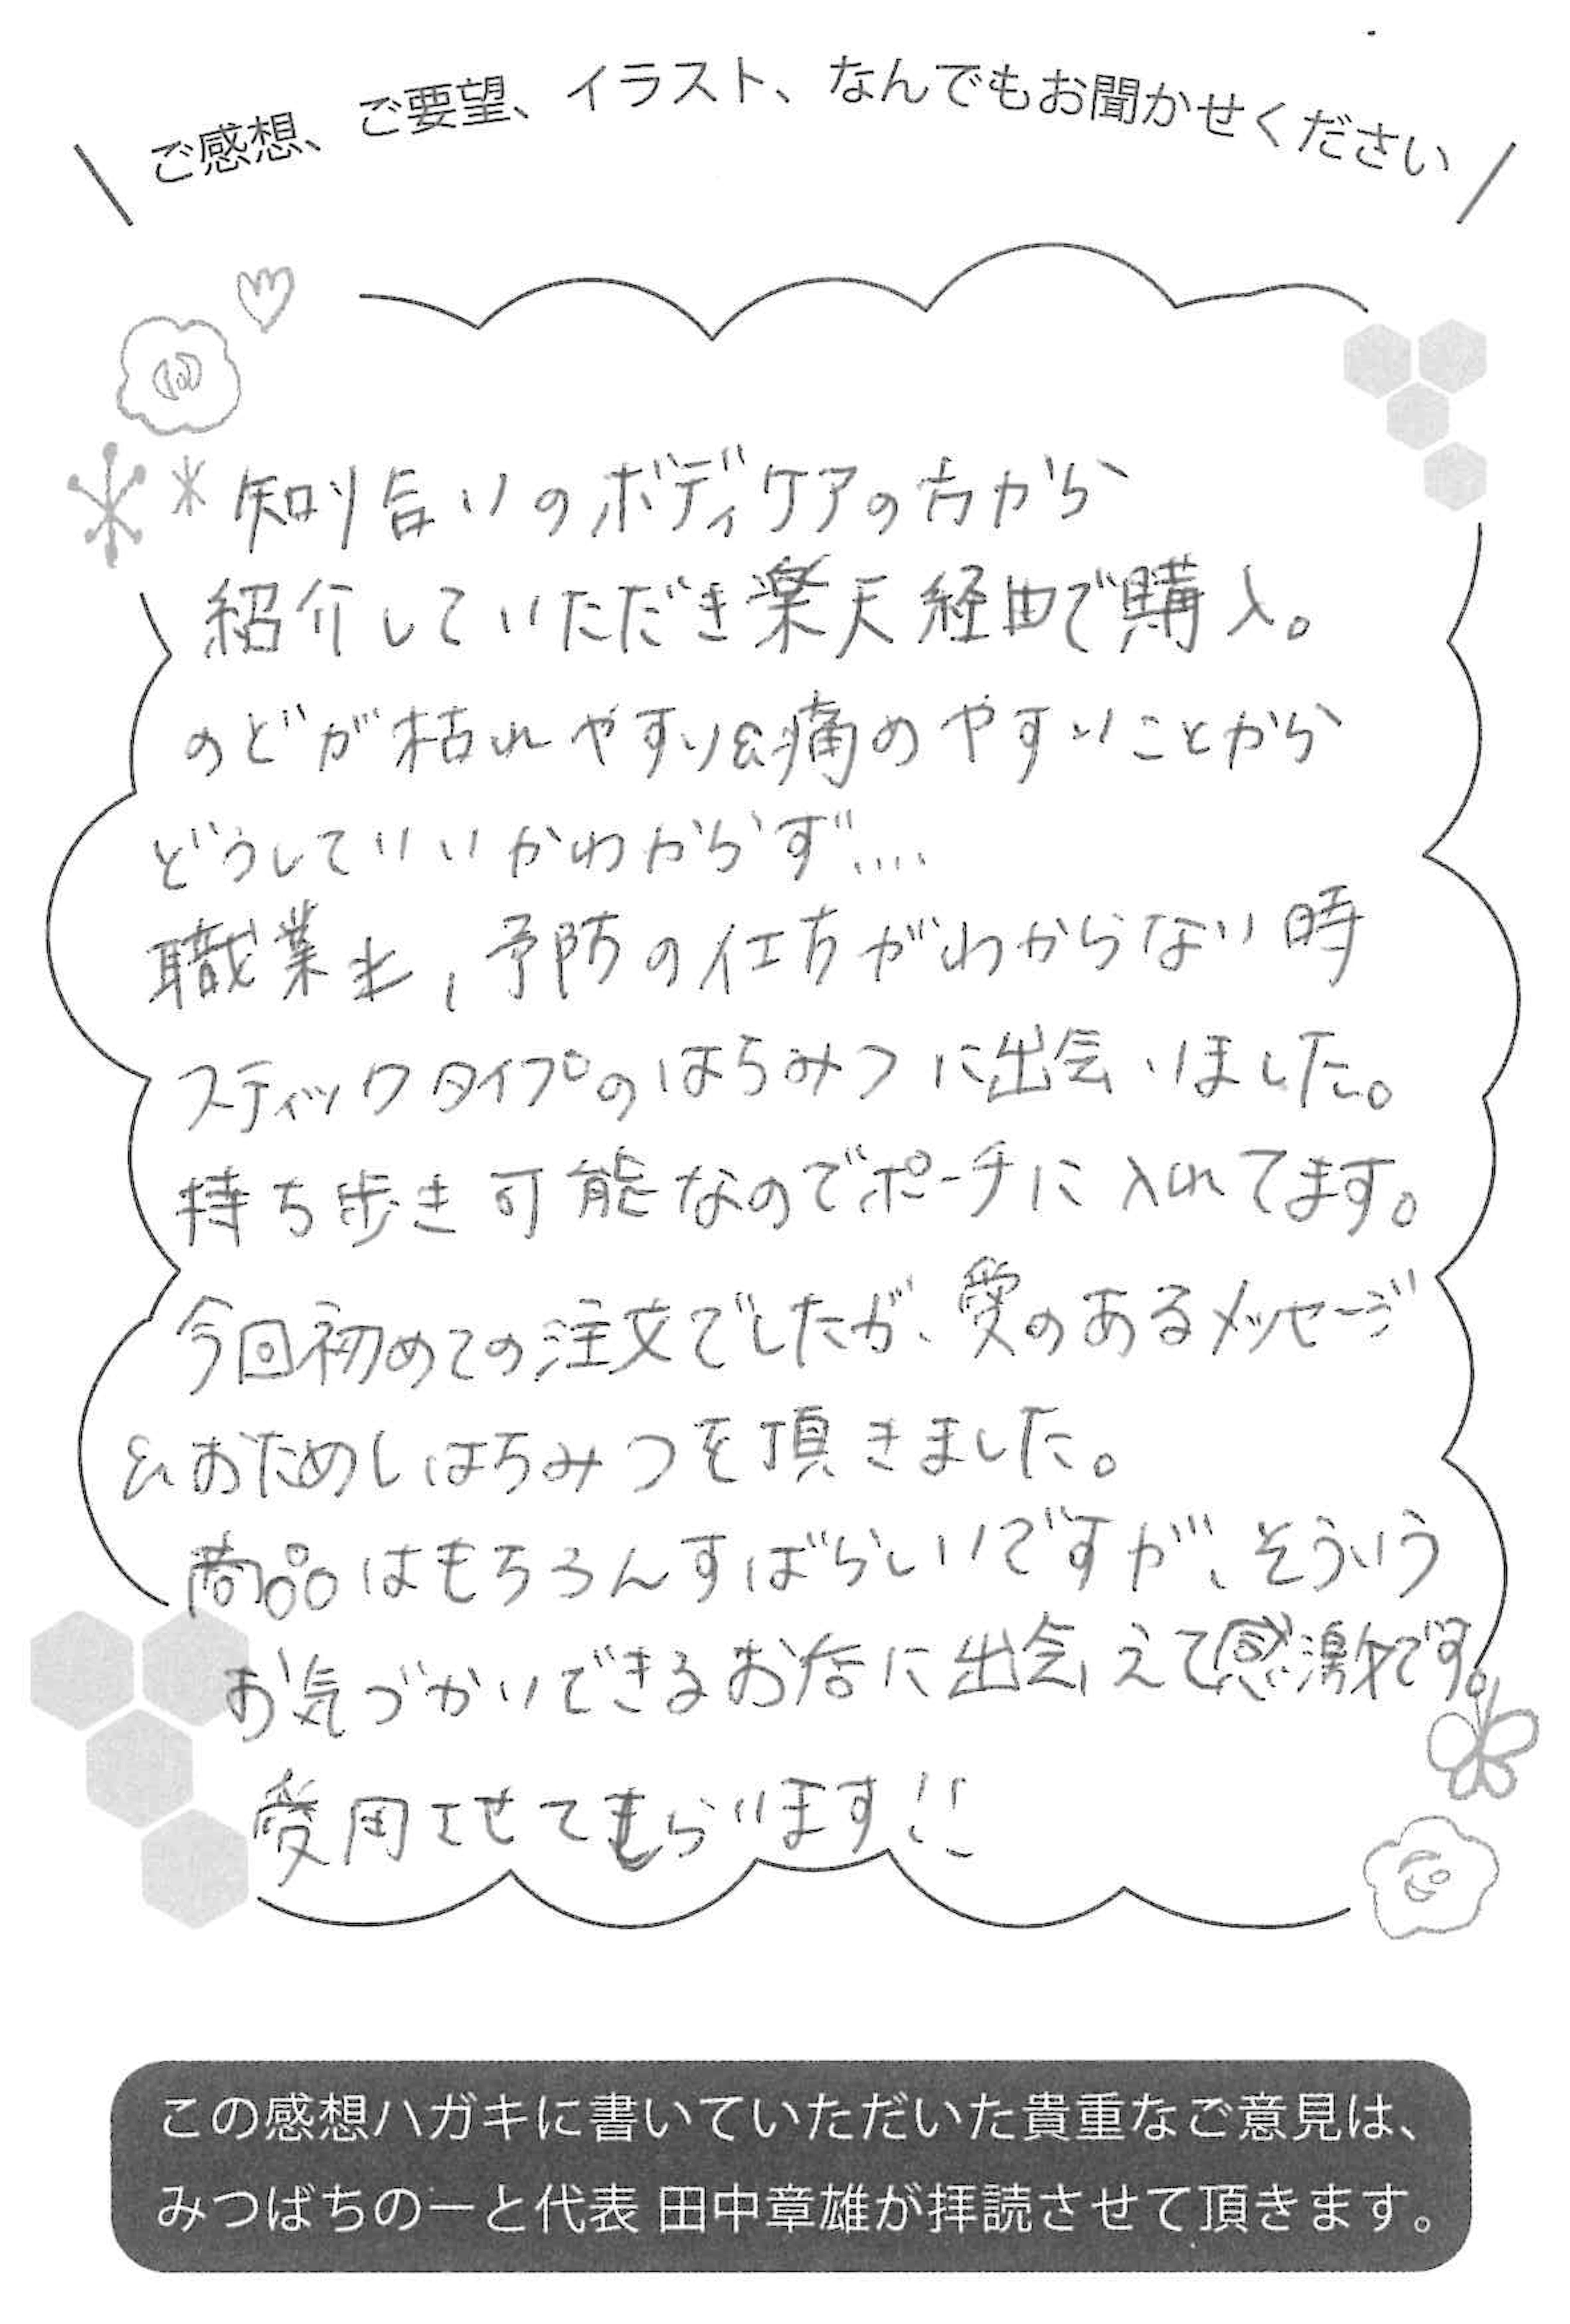 ご感想、ご要望、イラスト、なんでもお聞かせください
知り合いのボディケアの方から
紹介していただき楽天経由で購入。
のどが枯れやすい&痛めやすいことから
どうしていいかわからず....
職業上、予防の仕方がわからない時
スティックタイプのはちみつに出会いました。
持ち歩き可能なのでポーチに入れてます。
今回初めての注文でしたが、愛のあるメッセージ
&おためしはちみつを頂きました。
商品はもちろんすばらしいですが、そういう
お気づかいできるお店に出会えて感激です。
愛用させてもらいます!!
この感想ハガキに書いていただいた貴重なご意見は、
みつばちのーと代表 田中章雄が拝読させて頂きます。